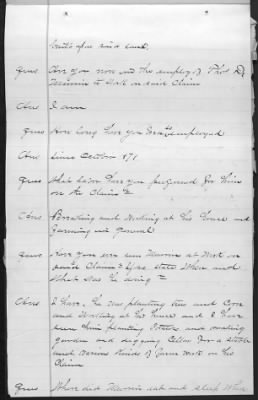 built upon said land.
Ques Are you now in the employ of Thos D
Mannin to work on said Claim
Ans I am
Ques How long have you been employed
Ans Since October 1871
Ques What labor have you performed for him
on the Claim
Ans Breaking and working at his house and
Farming in general
Ques Have you ever seen Mannin at work on
said Claim if so state when and
what was he doing
Ans I have. He was planting tree and Corn
and working at his house and I have
seen him planting Potatoes and making
garden and digging Cellar for a stable
and various kinds of farm work on his
Claim
Ques Where did Mannin eat and sleep when